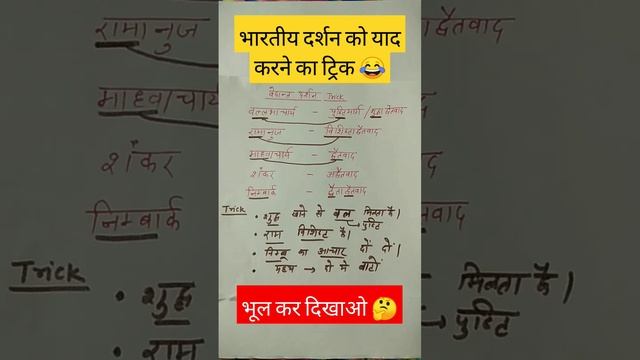 भारतीय दर्शन को याद
करने का ट्रिक 😂
वेदान्त दर्शन Trick
वल्लभाचार्य - पुष्टिमार्ग / शुद्धाद्वैतवाद
रामानुज - विशिष्टाद्वैतवाद
माध्वाचार्य - द्वैतवाद
शंकर - अद्वैतवाद
निम्बार्क - द्वैताद्वैतवाद
Trick
• शुद्ध खाने से बल मिलता है।
पुष्टि
• राम विशिष्ट है।
• निम्बू का आचार दो दो।
• मध्य → दो में बाटों
भूल कर दिखाओ 🤔
रामानुज
माध्वाचार्य
शंकर
निम्बार्क
Trick
• शुद्ध
• राम
द्वैतवाद
मिलता है।
पुष्टि